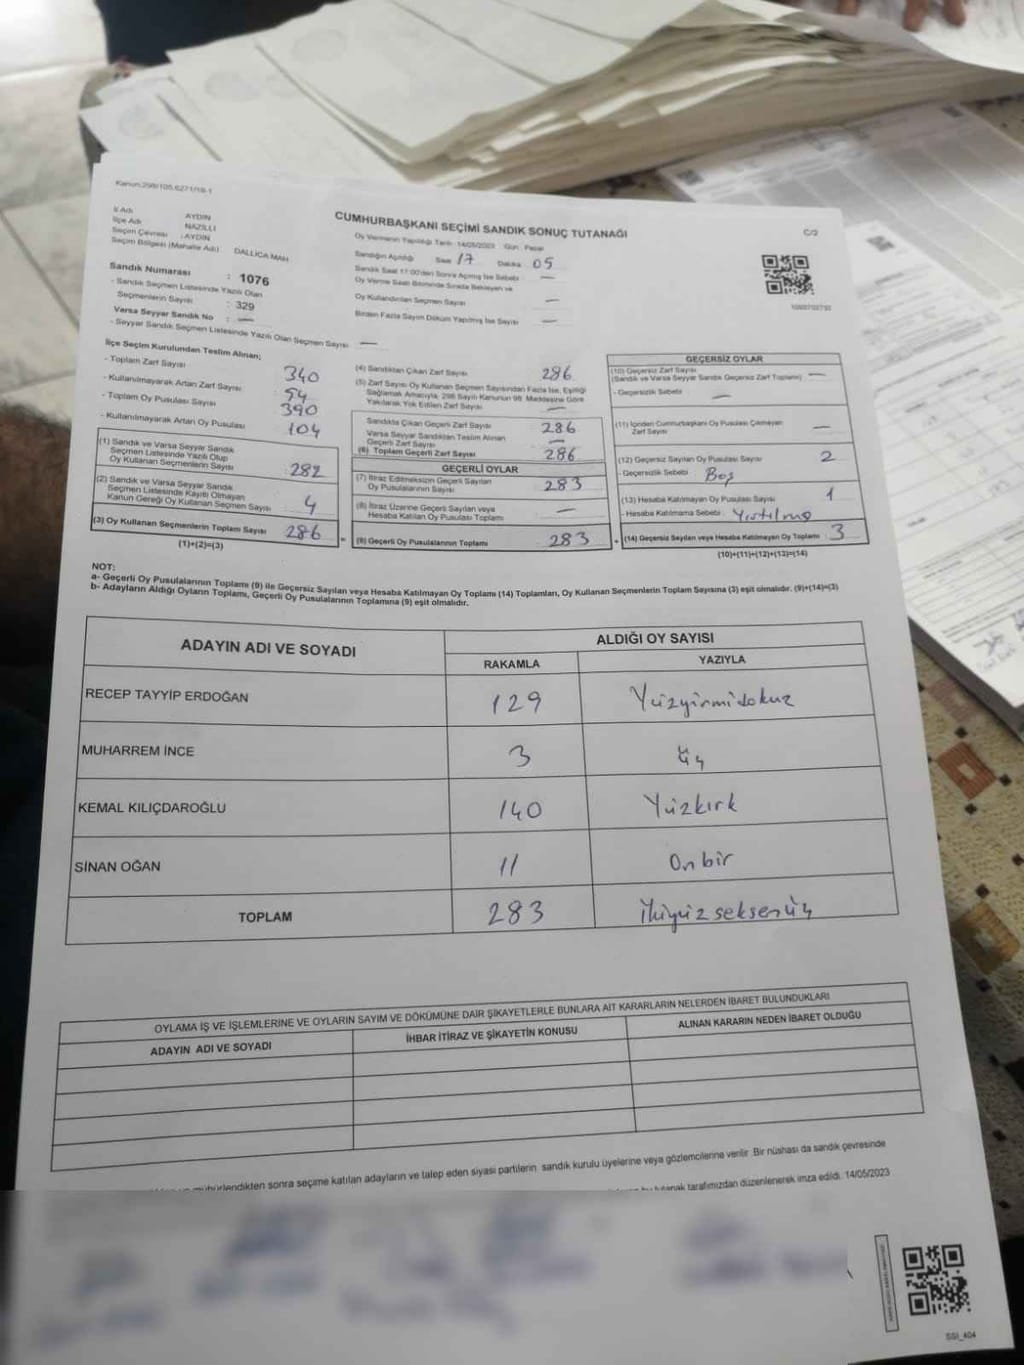 Kanun:298/105,6271/19-1
CUMHURBAŞKANI SEÇİMİ SANDIK SONUÇ TUTANAĞI
İl Adı AYDIN
İlçe Adı NAZİLLİ
Seçim Çevresi : AYDIN
Seçim Bölgesi (Mahalle Adı) DALLICA MAH
Sandık Numarası : 1076
- Sandık Seçmen Listesinde Yazılı Olan
Seçmenlerin Sayısı : 329
Varsa Seyyar Sandık No : —
- Seyyar Sandık Seçmen Listesinde Yazılı Olan Seçmen Sayısı —
Oy Vermenin Yapıldığı Tarih 14/05/2023 Gün : Pazar
Sandığın Açıldığı Saat 17 Dakika 05
Sandık Saat 17:00'den Sonra Açılmış İse Sebebi —
Oy Verme Saati Bitiminde Sırada Bekleyen ve
Oy Kullandırılan Seçmen Sayısı —
Birden Fazla Sayım Döküm Yapılmış İse Sayısı —
İlçe Seçim Kurulundan Teslim Alınan;
- Toplam Zarf Sayısı 340
- Kullanılmayarak Artan Zarf Sayısı 54
- Toplam Oy Pusulası Sayısı 390
- Kullanılmayarak Artan Oy Pusulası 104
(1) Sandık ve Varsa Seyyar Sandık
Seçmen Listesinde Yazılı Olup
Oy Kullanan Seçmenlerin Sayısı 282
(2) Sandık ve Varsa Seyyar Sandık
Seçmen Listesinde Kayıtlı Olmayan
Kanun Gereği Oy Kullanan Seçmen Sayısı 4
(3) Oy Kullanan Seçmenlerin Toplam Sayısı 286
(1)+(2)=(3)
(4) Sandıktan Çıkan Zarf Sayısı 286
(5) Zarf Sayısı Oy Kullanan Seçmen Sayısından Fazla İse, Eşitliği
Sağlamak Amacıyla, 298 Sayılı Kanunun 98. Maddesine Göre
Yakılarak Yok Edilen Zarf Sayısı —
Sandıkta Çıkan Geçerli Zarf Sayısı 286
Varsa Seyyar Sandıktan Teslim Alınan
Geçerli Zarf Sayısı —
(6) Toplam Geçerli Zarf Sayısı 286
GEÇERLİ OYLAR
(7) İtiraz Edilmeksizin Geçerli Sayılan
Oy Pusulalarının Sayısı 283
(8) İtiraz Üzerine Geçerli Sayılan veya
Hesaba Katılan Oy Pusulası Toplamı —
= (9) Geçerli Oy Pusulalarının Toplamı 283
GEÇERSİZ OYLAR
(10) Geçersiz Zarf Sayısı
(Sandık ve Varsa Seyyar Sandık Geçersiz Zarf Toplamı) —
- Geçersizlik Sebebi —
(11) İçinden Cumhurbaşkanı Oy Pusulası Çıkmayan
Zarf Sayısı —
(12) Geçersiz Sayılan Oy Pusulası Sayısı 2
- Geçersizlik Sebebi Boş
(13) Hesaba Katılmayan Oy Pusulası Sayısı 1
- Hesaba Katılmama Sebebi : Yırtılma
+ (14) Geçersiz Sayılan veya Hesaba Katılmayan Oy Toplamı : 3
(10)+(11)+(12)+(13)=(14)
NOT:
a- Geçerli Oy Pusulalarının Toplamı (9) ile Geçersiz Sayılan veya Hesaba Katılmayan Oy Toplamı (14) Toplamları, Oy Kullanan Seçmenlerin Toplam Sayısına (3) eşit olmalıdır. (9)+(14)=(3)
b- Adayların Aldığı Oyların Toplamı, Geçerli Oy Pusulalarının Toplamına (9) eşit olmalıdır.
ADAYIN ADI VE SOYADI ALDIĞI OY SAYISI
RAKAMLA YAZIYLA
RECEP TAYYİP ERDOĞAN 129 Yüzyirmidokuz
MUHARREM İNCE 3 üç
KEMAL KILIÇDAROĞLU 140 Yüzkırk
SİNAN OĞAN 11 Onbir
TOPLAM 283 İkiyüzseksenüç
OYLAMA İŞ VE İŞLEMLERİNE VE OYLARIN SAYIM VE DÖKÜMÜNE DAİR ŞİKAYETLERLE BUNLARA AİT KARARLARIN NELERDEN İBARET BULUNDUKLARI
ADAYIN ADI VE SOYADI İHBAR İTİRAZ VE ŞİKAYETİN KONUSU ALINAN KARARIN NEDEN İBARET OLDUĞU
mühürlendikten sonra seçime katılan adayların ve talep eden siyasi partilerin sandık kurulu üyelerine veya gözlemcilerine verilir. Bir nüshası da sandık çevresinde
tutanak tarafımızdan düzenlenerek imza edildi. 14/05/2023
SSI_404